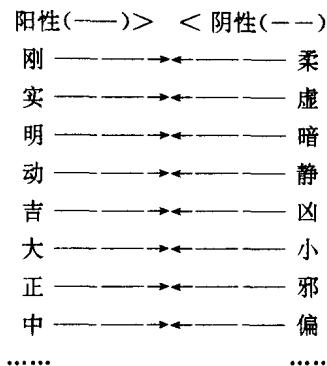 阳性(——)> <阴性(– –)
刚 柔
实 虚
明 暗
动 静
吉 凶
大 小
正 邪
中 偏
…… ……